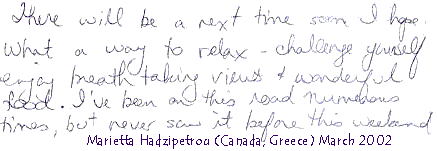 There will be a next time soon I hope.
What a way to relax - challenge yourself
enjoy breath taking views & wonderful
food. I've been on this road numerous
times, but never saw it before this weekend
Marietta Hadzipetrou (Canada, Greece) March 2002